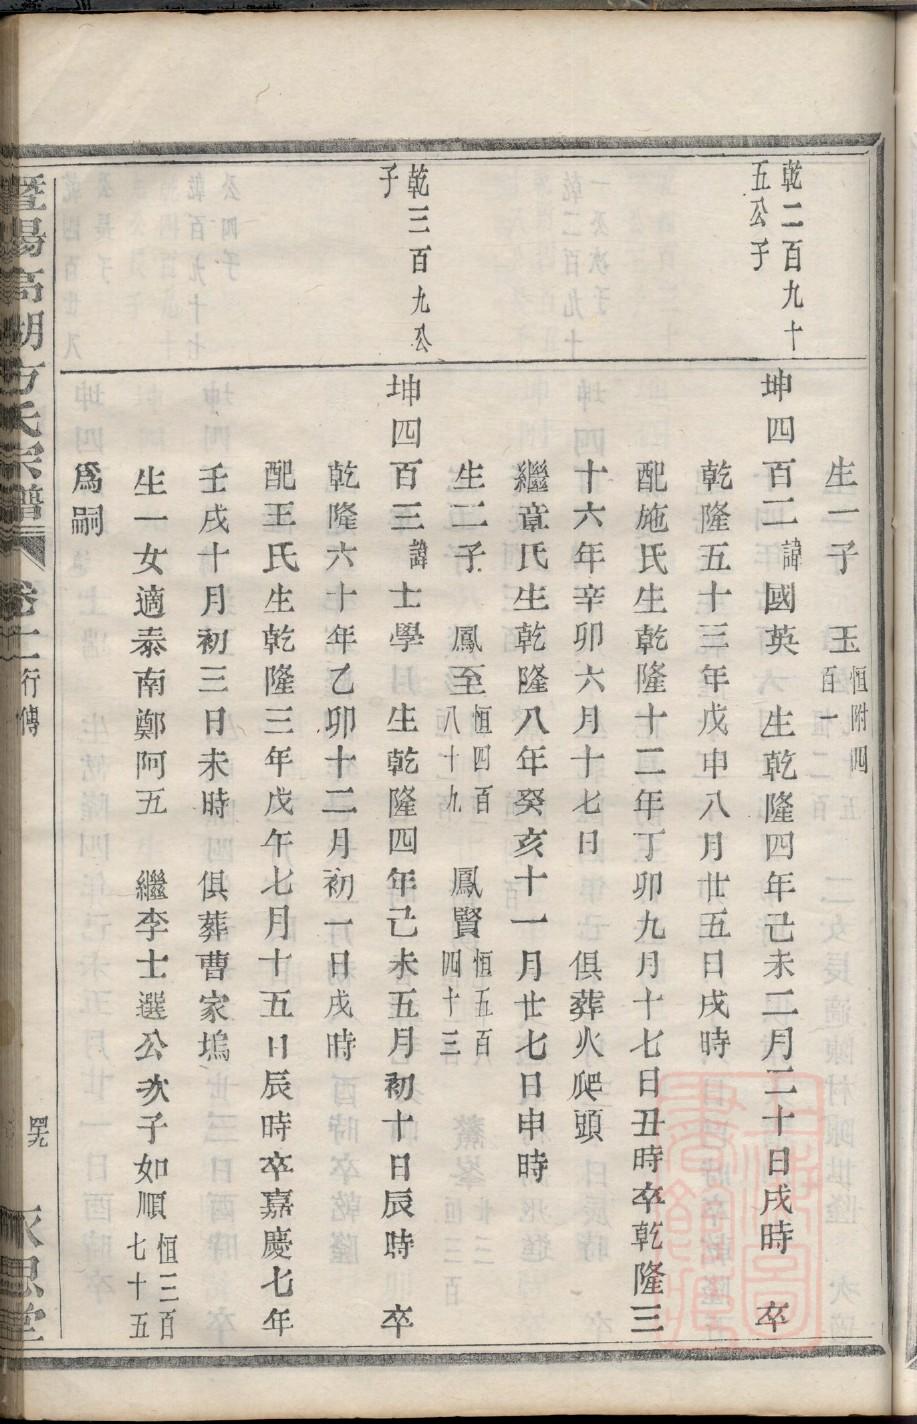 乾二百九十
五公子
生一子　玉恒附四百一
坤四百二諱國英　生乾隆四年己未二月二十日戌時　卒
乾隆五十三年戊申八月廿五日戌時
配施氏生乾隆十二年丁卯九月十七日丑時卒乾隆三
十六年辛卯六月十七日　俱葬火爬頭
繼章氏生乾隆八年癸亥十一月廿七日申時
生二子　鳳至恒四百八十九　鳳賢恒五百四十三
乾三百九公
子
坤四百三諱士學　生乾隆四年己未五月初十日辰時　卒
乾隆六十年乙卯十二月初一日戌時
配王氏生乾隆三年戊午七月十五日辰時卒嘉慶七年
壬戌十月初三日未時　俱葬曹家塢
生一女適泰南鄭阿五　繼李士選公次子如順恒三百七十五
爲嗣
暨陽高湖方氏宗譜　卷二行傳　永思堂